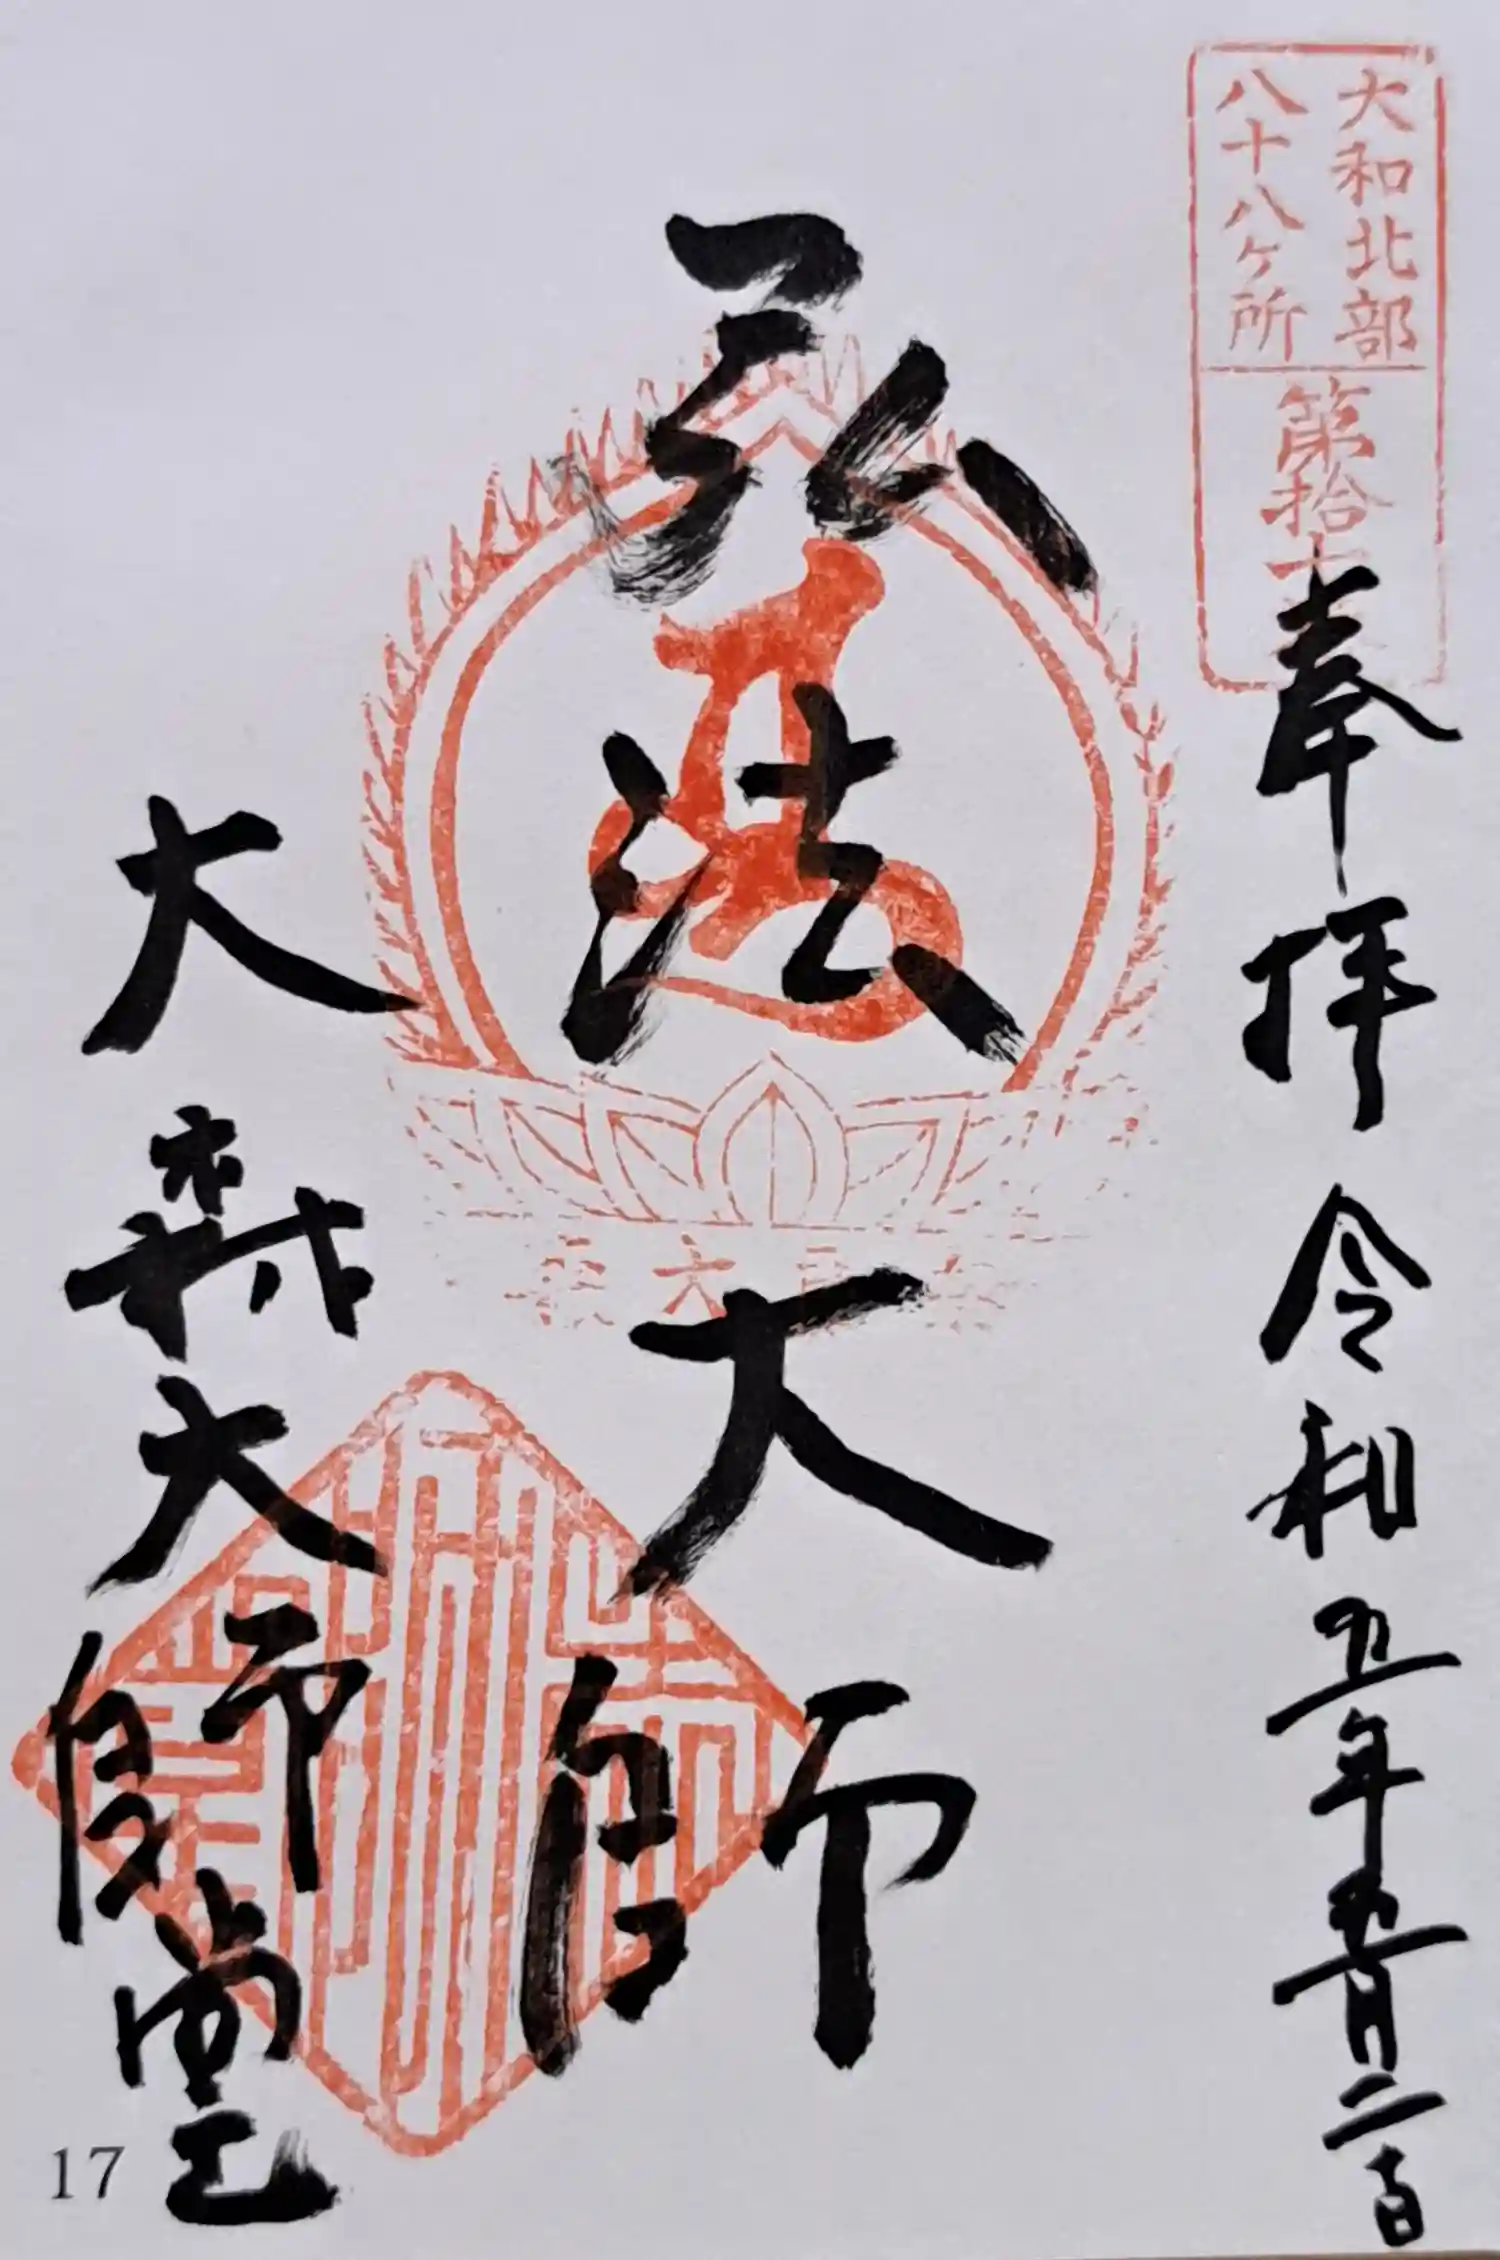 大和北部
八十八ヶ所
第拾
奉拝 令和五年五月二十日
弘法大師
大 大師堂
17